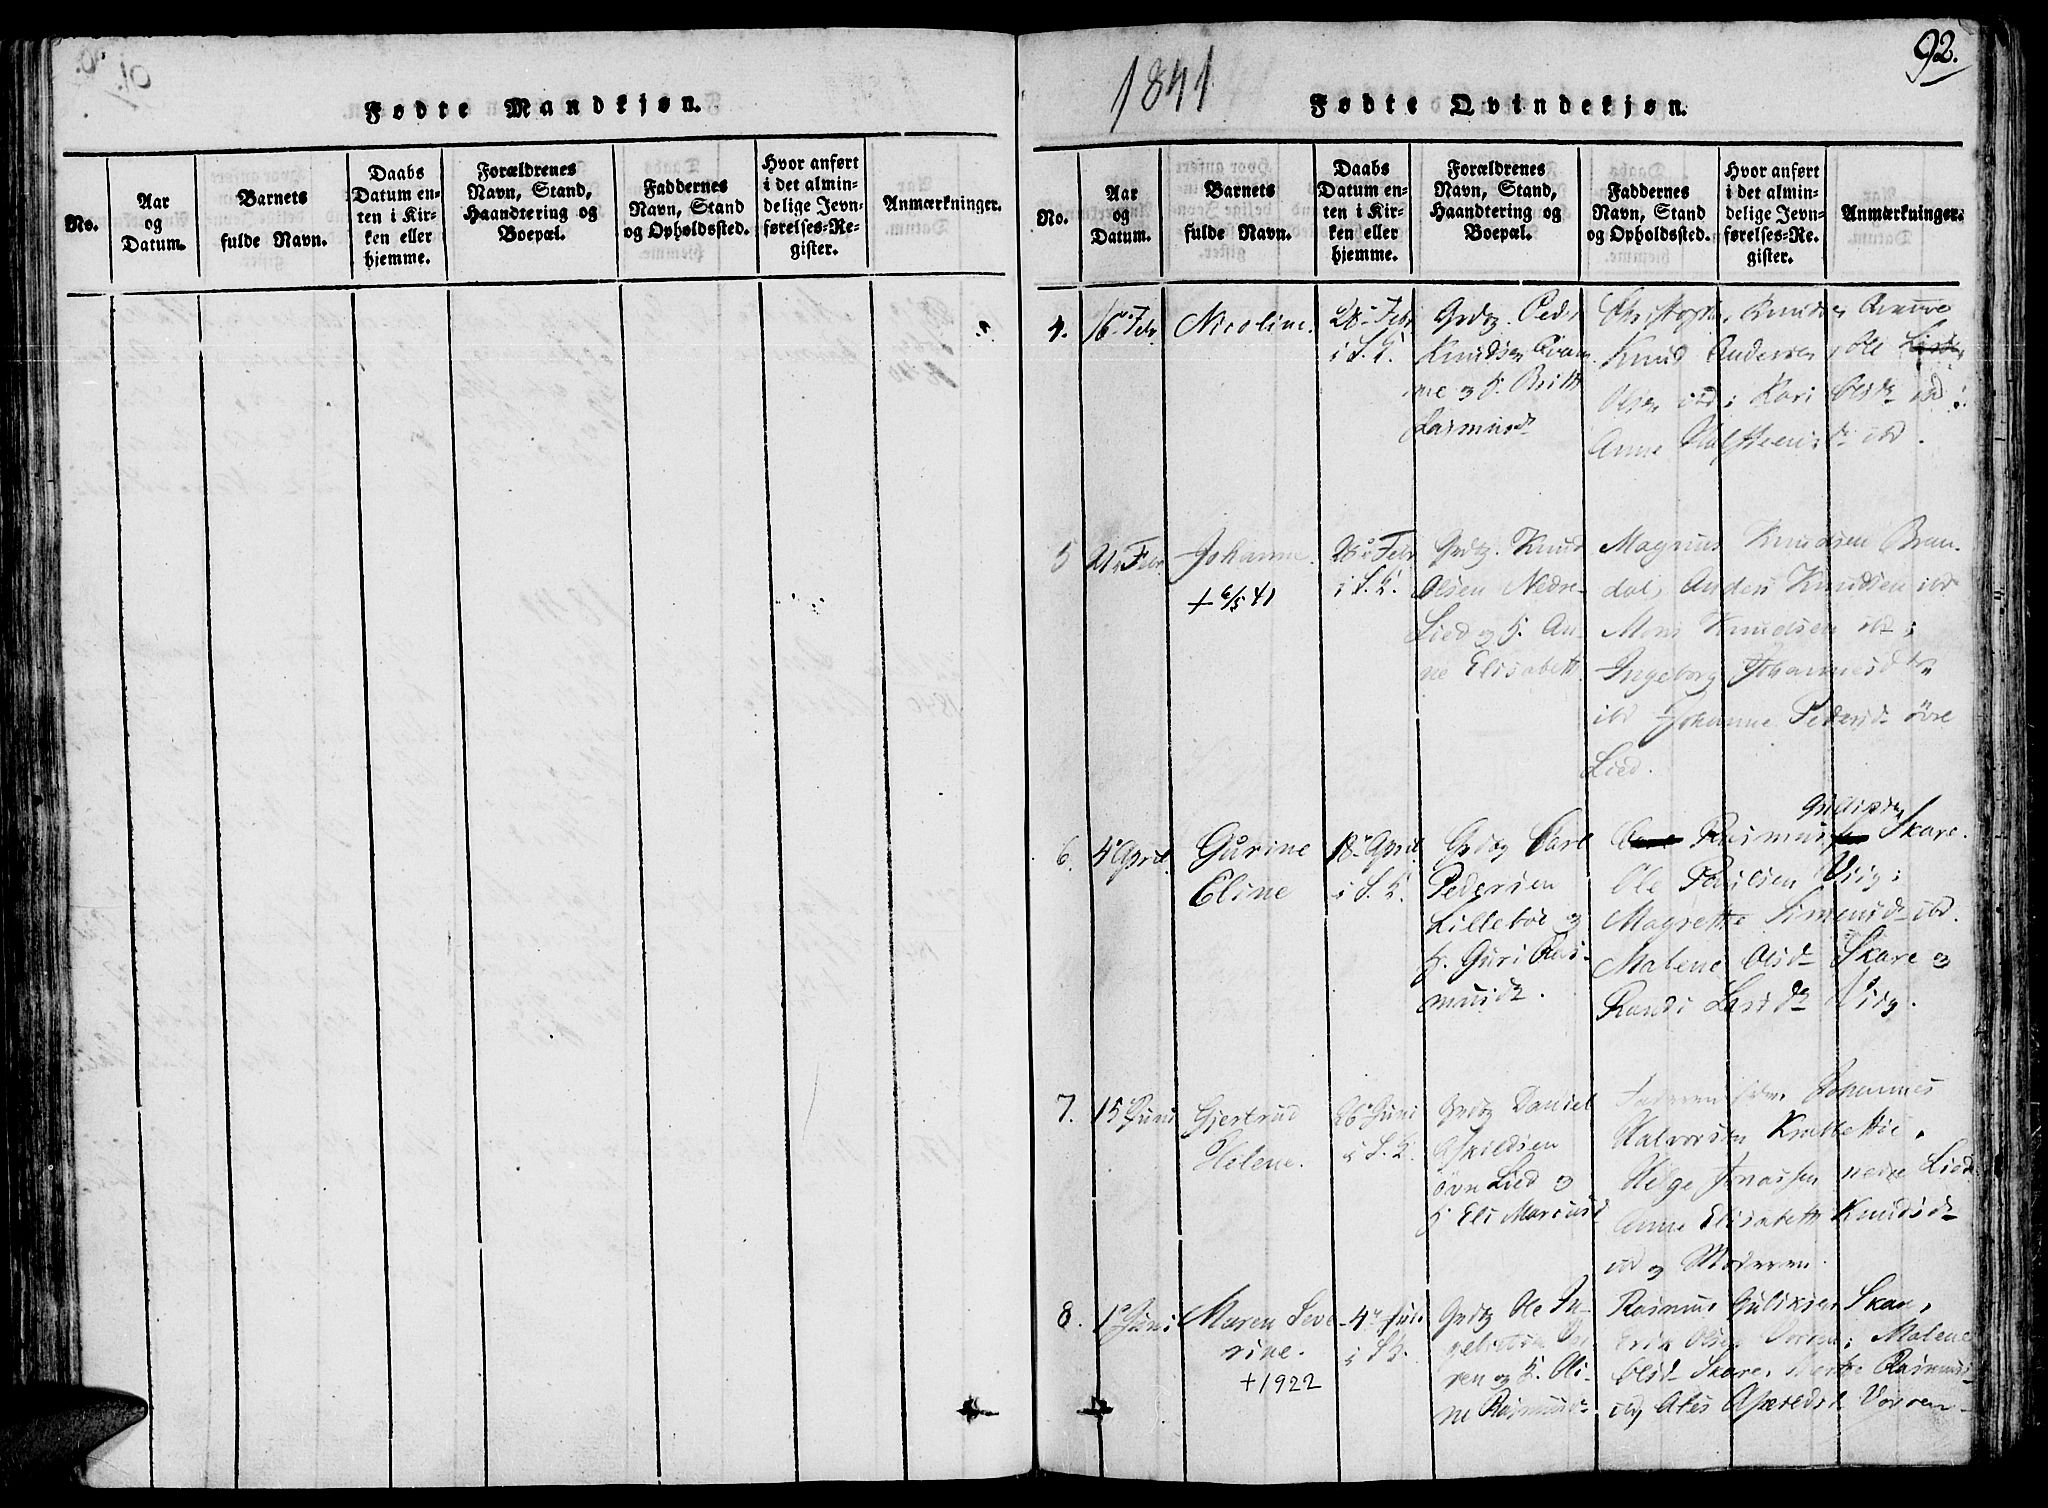 92.
1841
Fødte Mandkjøn.
No.
Aar
og
Datum.
Barnets
fulde Navn.
Daabs
Datum en-
ten i Kir-
ken eller
hjemme.
Forældrenes
Navn, Stand,
Haandtering og
Boepæl.
Faddernes
Navn, Stand
og Opholdssted.
Hvor anført
i det almin-
delige Jevn-
førelses-Re-
gister.
Anmærkninger.
Fødte Qvindekjøn.
No.
Aar
og
Datum.
Barnets
fulde Navn.
Daabs
Datum en-
ten i Kir-
ken eller
hjemme.
Forældrenes
Navn, Stand,
Haandtering og
Boepæl.
Faddernes
Navn, Stand
og Opholdssted.
Hvor anført
i det almin-
delige Jevn-
førelses-Re-
gister.
Anmærkninger.
4.
16 Febr
Nicoline.
28 Febr
i S. K.
Grdbg. Peder
Knudsen
og K. Britt
Rasmusd
Christopher Knudsen
Knud Andersen, Ole
Olsen ibd; Kari Olsd ibd;
Anne Halsteensd ibd.
5
21 Febr
Johanne.
+ 6/5 41
28 Febr
i S. K.
Grdbg. Knud
Olsen Nedre
Lied og K. An-
ne Elisabeth
Magnus Knudsen Bran-
dal, Anders Knudsen ibd
Mons Knudsen ibd;
Ingeborg Johannesd
ibd Johanne Pedersd øvre
Lied.
6.
4 April
Gurine
Eline
18 April
i S. K.
Grdbg Carl
Pedersen
Lillebøe og
K. Guri Ras-
musd.
Guliksen
Rasmus Skare.
Ole Paulsen Viig;
Magrethe Simensd ibd.
Malene Olsd Skare og
Randi Larsd Viig.
7.
15 Juni
Gjertrud
Helene.
26 Juni
i S. K.
Grdbg Daniel
Eskildsen
øvre Lied og
K Eli Mariusd
Faderen Johannes
Halvorsen
Helge Jonassen nedre Lied
Anne Elisabeth Knudsd
ibd og Moderen.
8.
1 Juni
Maren Seve
rine.
+ 1922
4 Juli
i S K.
Grdbg Ole In-
gebretsen
og K. Oli-
ne Rasmusd
Rasmus Guliksen Skare,
Erik Olsen Vorren; Malene
Olsd Skare, Rasmus-
Vorren